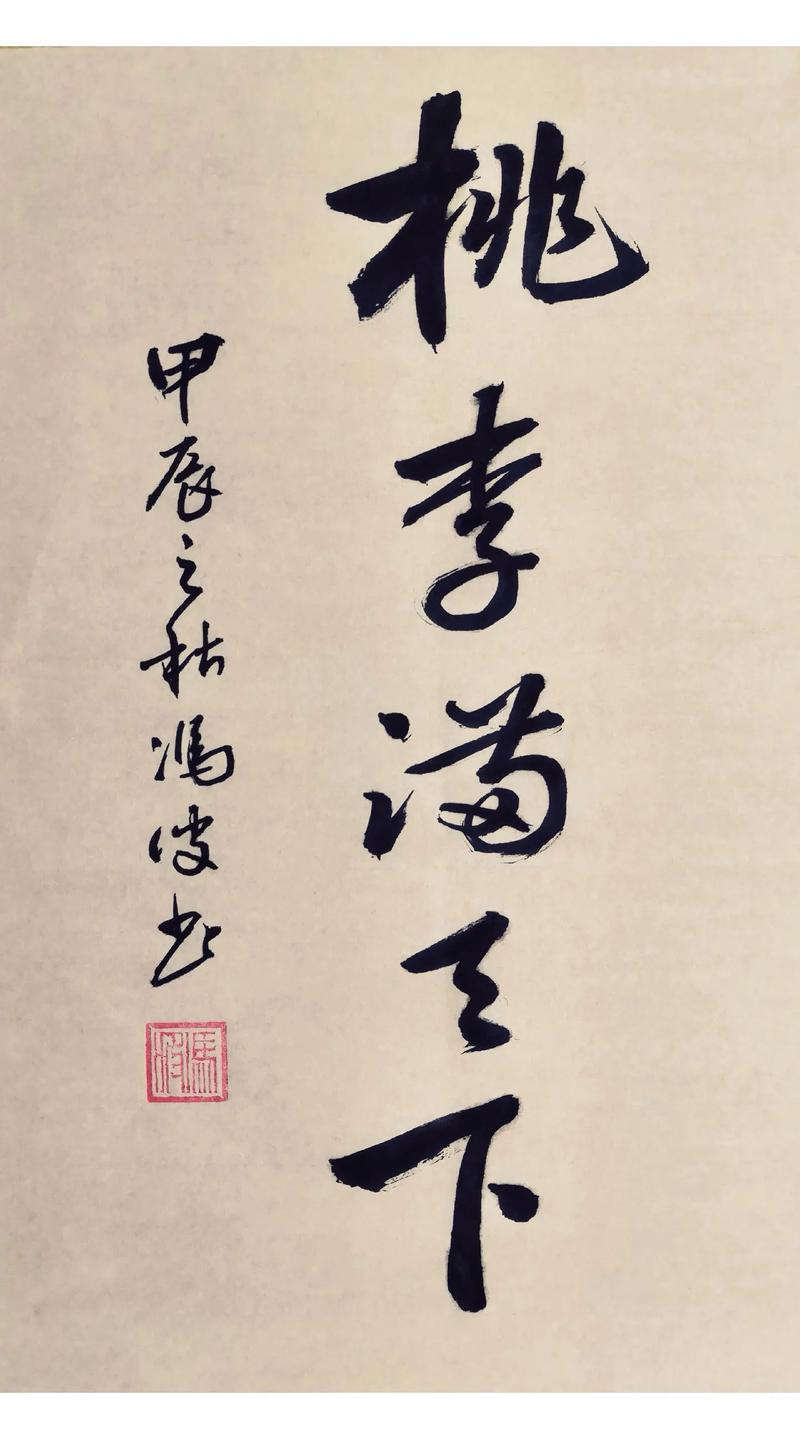 桃李满天下
甲辰之秋冯波书